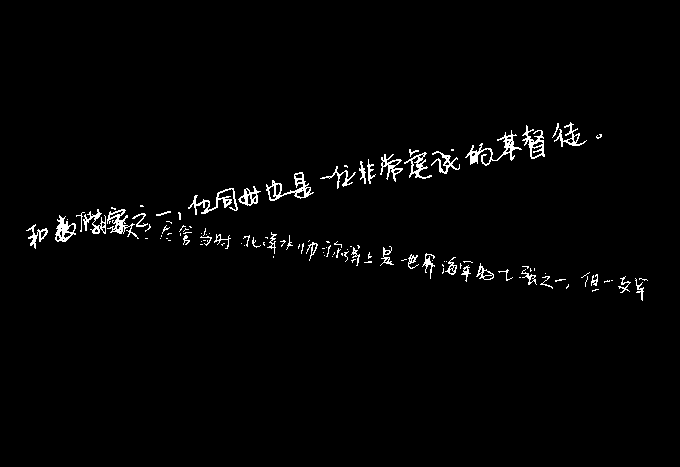 和数学家之一,他同时也是一位非常虔诚的基督徒。
尽管当时北洋水师称得上是世界海军的七强之一,但一支军